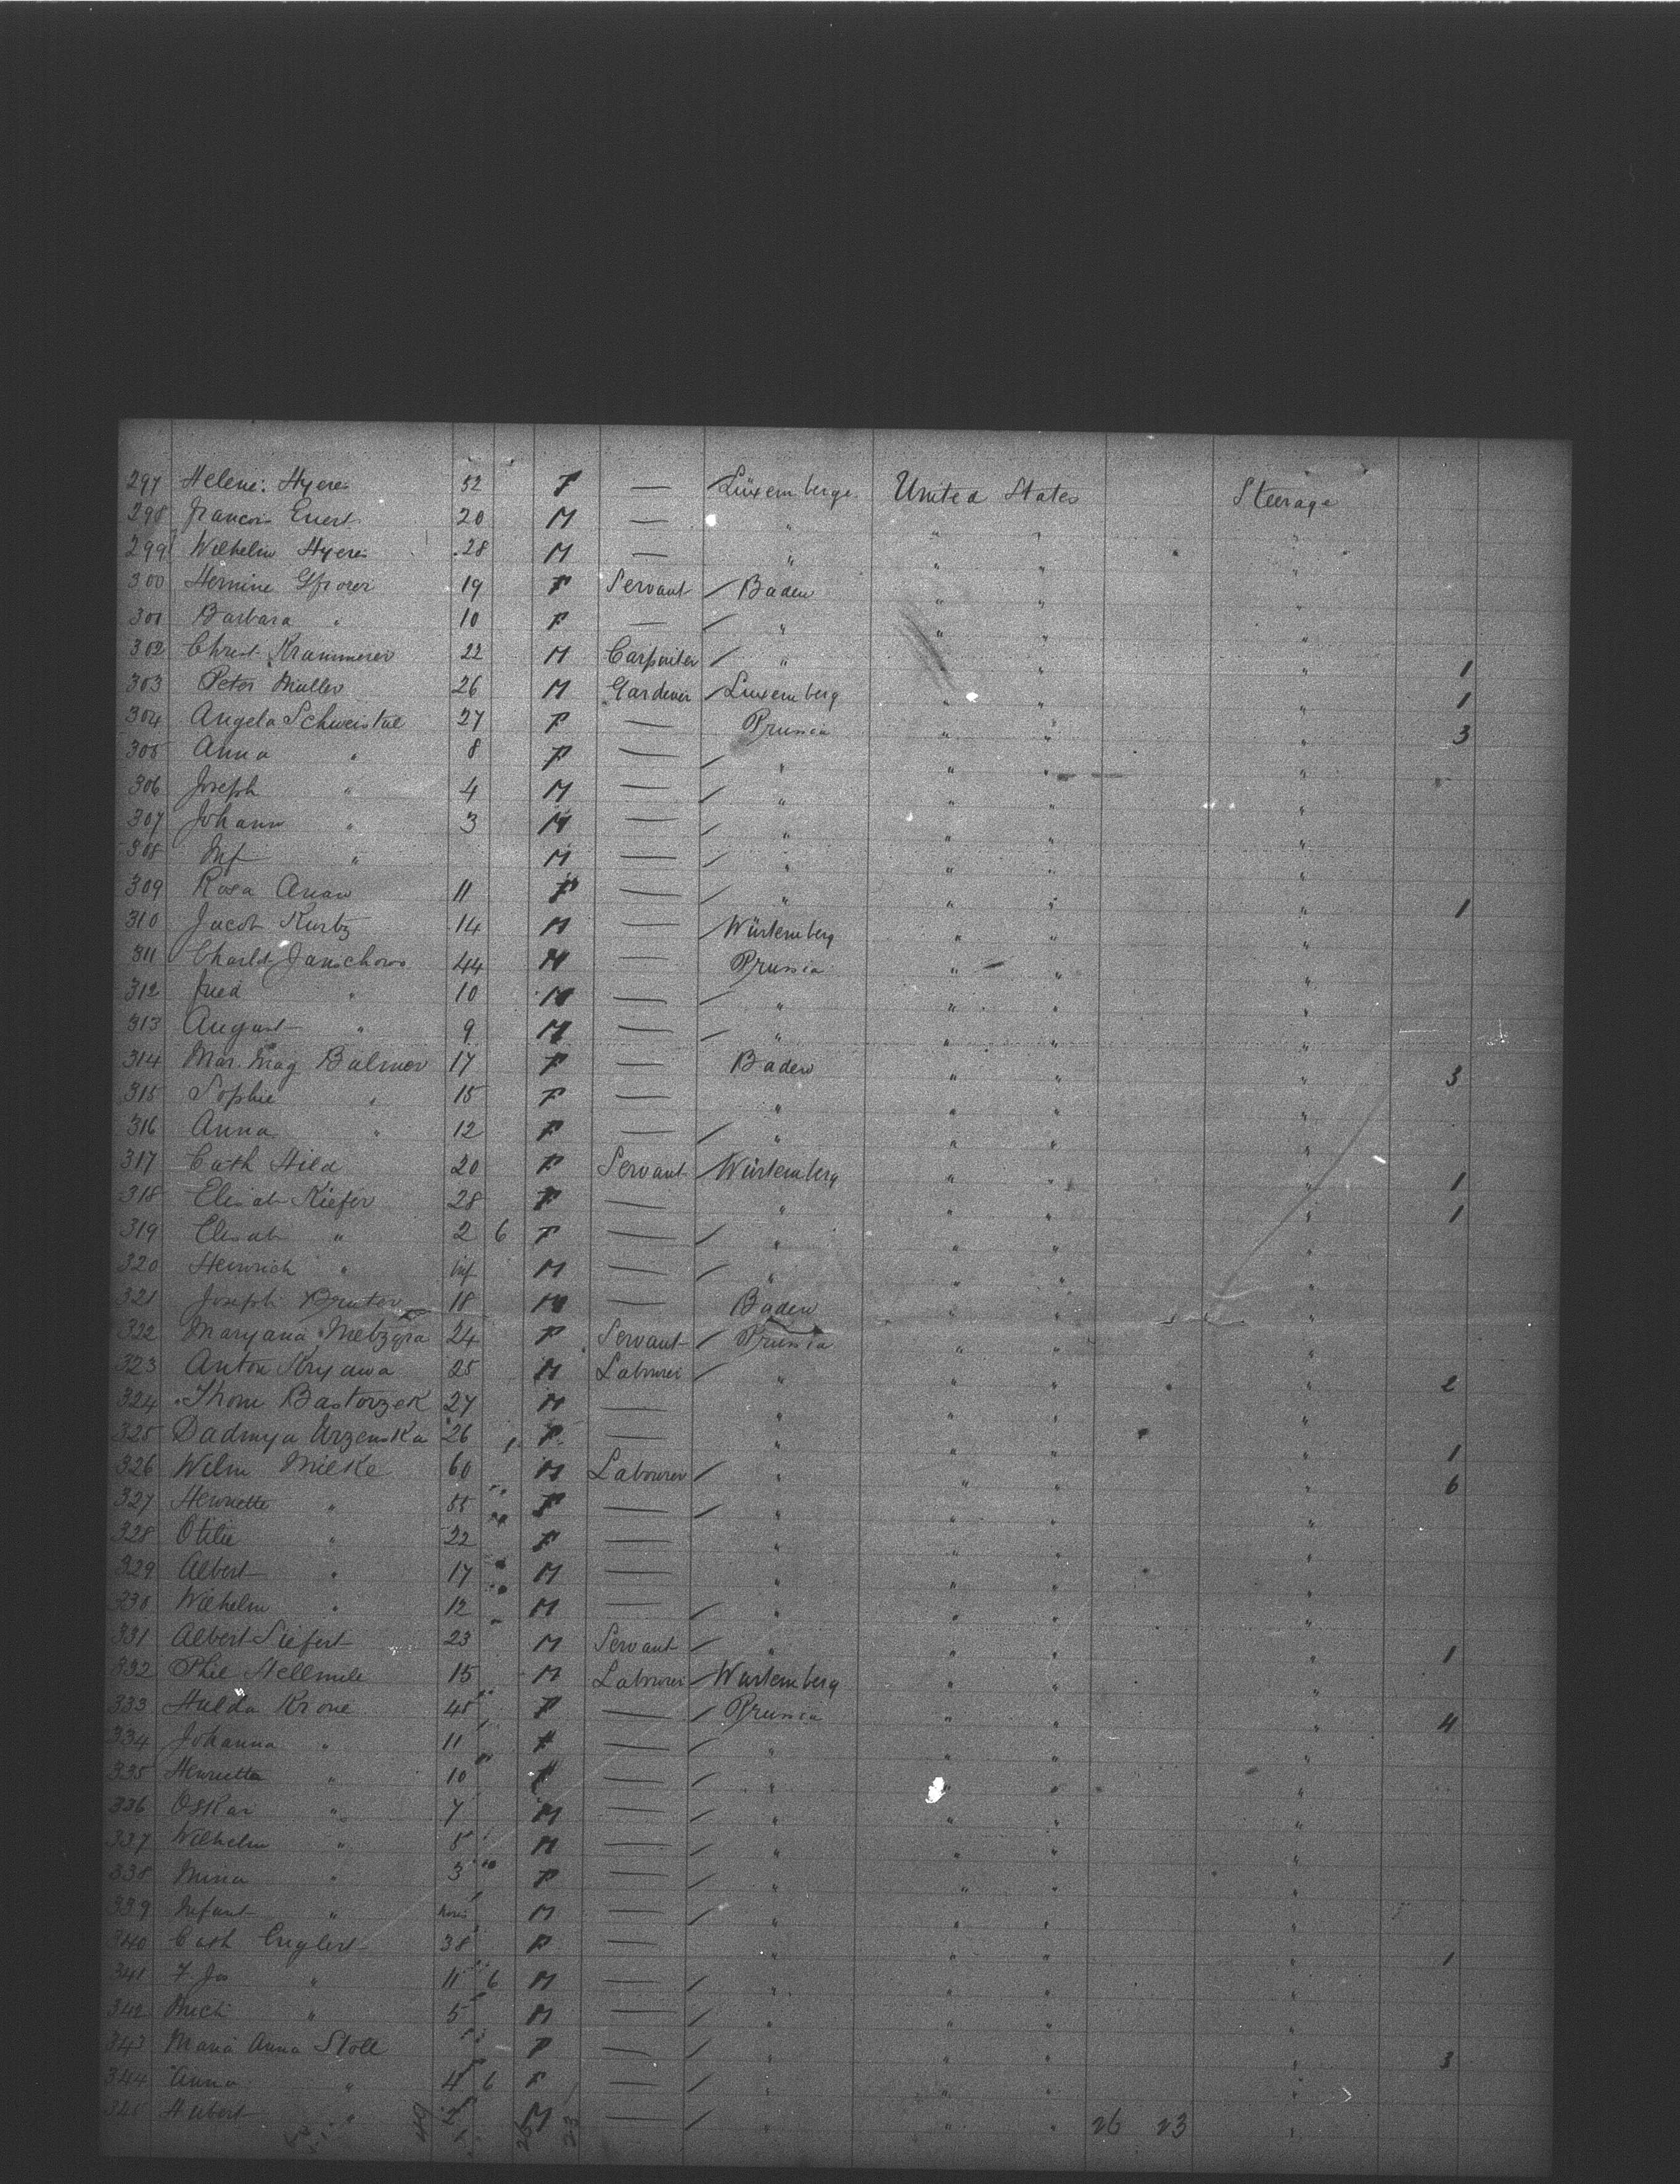 297 Helene Hyere 52 F — Lüxemberge United States Steerage
298 Francois Evert 20 M — " " " "
299 Wilhelm Hyere 28 M — " " " "
300 Hermine Gfrorer 19 F Servant Baden " " "
301 Barbara " 10 F — " " " "
302 Christ Krammerer 22 M Carpenter " " " " 1
303 Peter Muller 26 M Gardener Luxemberg " " " 1
304 Angela Schweistal 27 F — Prussia " " " 3
305 Anna " 8 F — " " " "
306 Joseph " 4 M — " " " "
307 Johann " 3 M — " " " "
308 Inf " M — " " " "
309 Rosa 11 F — " " " " 1
310 Jacob Kurtz 14 M — Würtemberg " " "
311 Janschows 44 M — Prussia " " "
312 Fried " 10 M — " " " "
313 August " 9 M — " " " "
314 Mar. Mag Balmer 17 F — Baden " " " 3
315 Sophie " 15 F — " " " "
316 Anna " 12 F — " " " "
317 Cath Hild 20 F Servant Würtemberg " " " 1
318 Elisab Kiefer 28 F — " " " " 1
319 Elisab " 2 6 F — " " " "
320 Heinrich " inf M — " " " "
321 Joseph 18 M — Baden " " "
322 Maryana Metzgra 24 F Servant Prussia " " "
323 Anton Kryawa 25 M Labourer " " " " 2
324 Thom Bastorzek 27 M — " " " "
325 Dadmya Urzenska 26 F — " " " " 1
326 Wilm Mielke 60 M Labourer " " " " 6
327 Henriette " 55 F — " " " "
328 Otilie " 22 F — " " " "
329 Albert " 17 M — " " " "
330 Wilhelm " 12 M — " " " "
331 Albert Siefert 23 M Servant " " " " 1
332 Phil Hellmile 15 M Labourer Wurtemberg " " "
333 Hulda Krone 45 F — Prussia " " " 4
334 Johanna " 11 F — " " " "
335 Henrietta " 10 F — " " " "
336 Oskar " 7 M — " " " "
337 Wilhelm " 5 M — " " " "
338 Mina " 3 F — " " " "
339 Infant " M — " " " "
340 Cath Englert 38 F — " " " " 1
341 F. Jos " 11 6 M — " " " "
342 Mich " 5 M — " " " "
343 Maria Anna Stoll F — " " " " 3
344 Anna " 4 6 F — " " " "
345 Hubert " 2 M — " " " 26 23 "